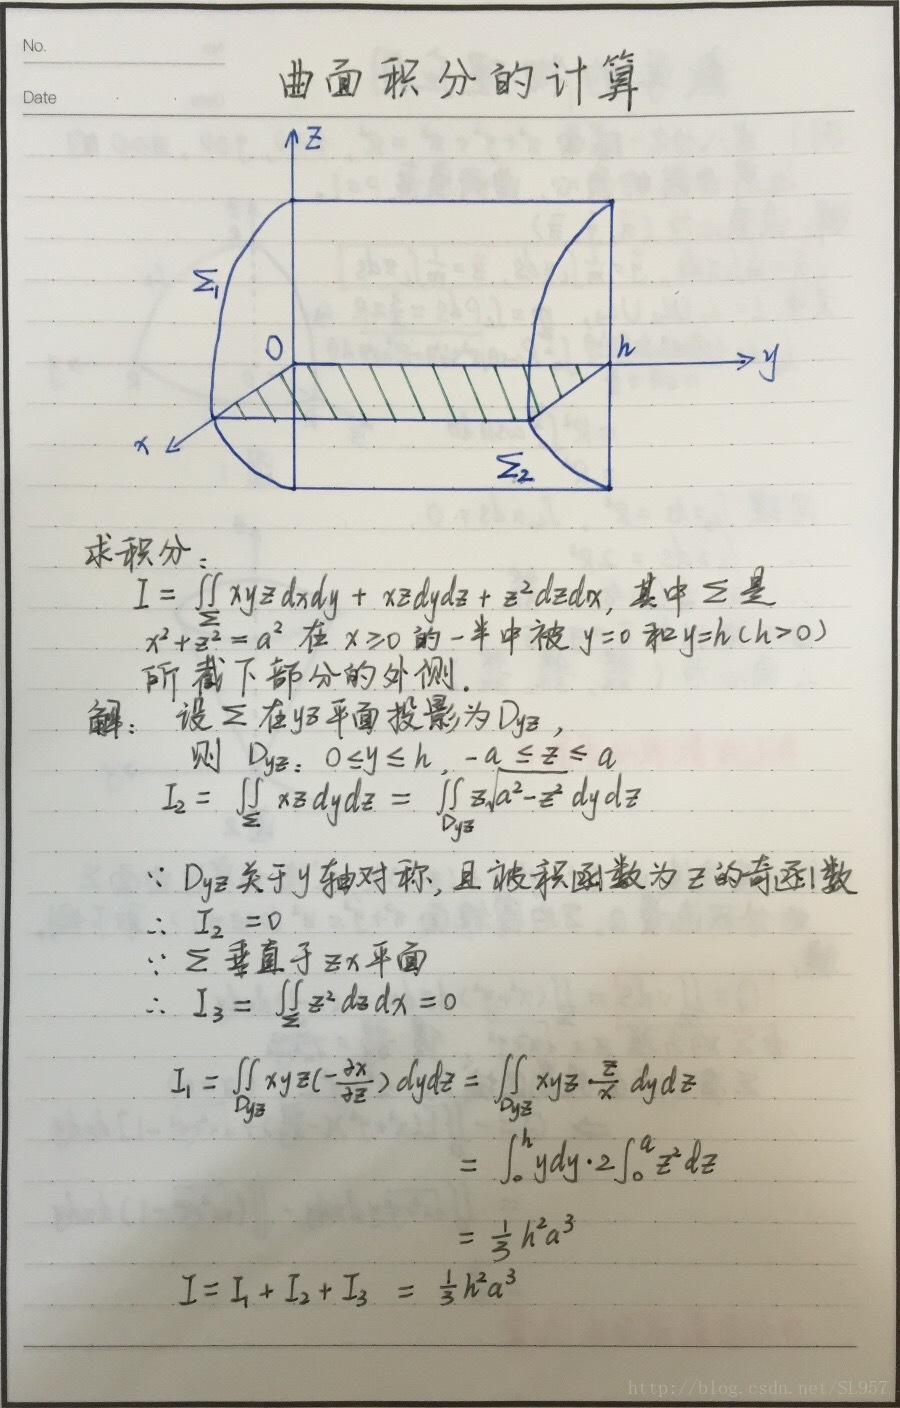 No.
Date
曲面积分的计算
z
Σ₁
O
h
y
x
Σ₂
求积分:
I = ∬_Σ xyzdxdy + xzdydz + z²dzdx, 其中Σ是
x²+z²=a² 在 x≥0 的一半中被 y=0 和 y=h(h>0)
所截下部分的外侧.
解: 设Σ在yz平面投影为Dyz,
则 Dyz: 0≤y≤h, -a≤z≤a
I₂ = ∬_Σ xzdydz = ∬_Dyz z√(a²-z²) dydz
∵ Dyz关于y轴对称,且被积函数为z的奇函数
∴ I₂ =0
∵ Σ垂直于zx平面
∴ I₃ = ∬_Σ z²dzdx =0
I₁ = ∬_Dyz xyz(-∂x/∂z) dydz = ∬_Dyz xyz·z/x dydz
= ∫₀^h ydy·2∫₀^a z²dz
= 1/3 h²a³
I = I₁ + I₂ + I₃ = 1/3 h²a³
http://blog.csdn.net/SL957